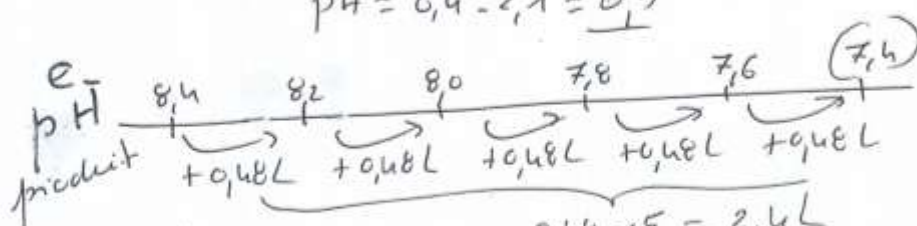 pH = 8,4 - 2,1 =
e-
pH 8,4 8,2 8,0 7,8 7,6 7,4
produit +0,48L +0,48L +0,48L +0,48L +0,48L
= 2,4L